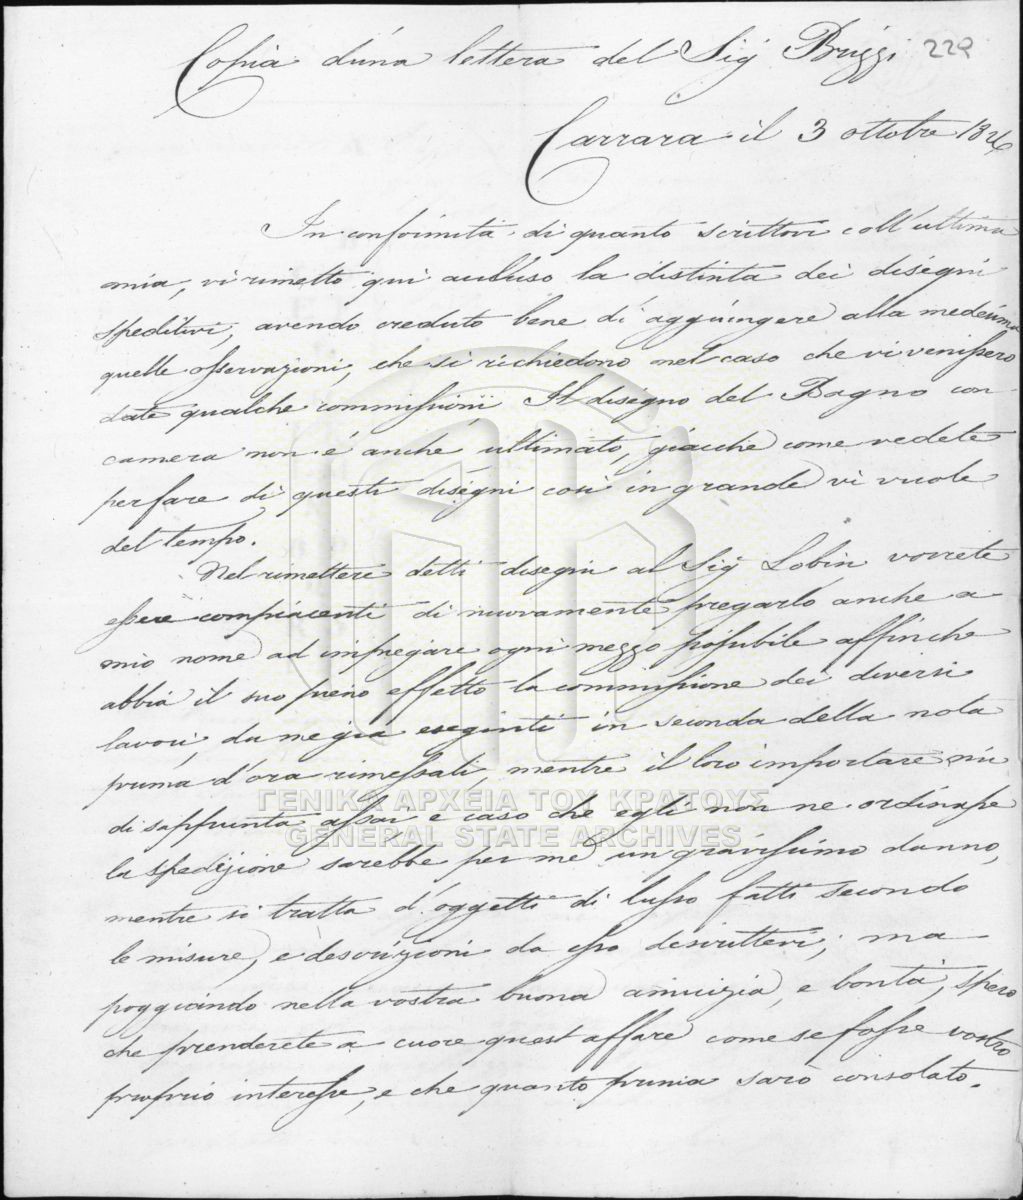 Copia d'una lettera del Sig Bruzzi 229
Carrara il 3 ottobre
In conformita di quanto scrittovi coll'ultima
mia, vi rimetto qui accluso la distinta dei disegni
speditivi, avendo creduto bene di aggiungere alla medesima
quelle osservazioni, che si richiedono nel caso che vi venissero
date qualche commissioni, Il disegno del Bagno con
camera non é anche ultimato, giacché come vedete
per fare di questi disegni cosi in grande vi vuole
del tempo.
Nel rimettere detti disegni al Sig Lobin vorrete
essere compiacenti di nuovamente pregarlo anche a
mio nome ad impiegare ogni mezzo possibile affinche
abbia il suo pieno effetto la commissione dei diversi
lavori, da me gia eseguiti in seconda della nota
prima d'ora rimessati, mentre il loro importare mi
disappunta assai e caso che egli non ne ordinasse
la spedizione sarebbe per me un gravissimo danno,
mentre si tratta d'oggetti di lusso fatti secondo
le misure, e descrizioni da esso descrittevi; ma
poggiando nella vostra buona amicizia, e bontà, spero
che prenderete a cuore quest affare come se fosse vostro
proprio interesse, e che quanto prima sarò consolato.
ΓΕΝΙΚΑ ΑΡΧΕΙΑ ΤΟΥ ΚΡΑΤΟΥΣ
GENERAL STATE ARCHIVES